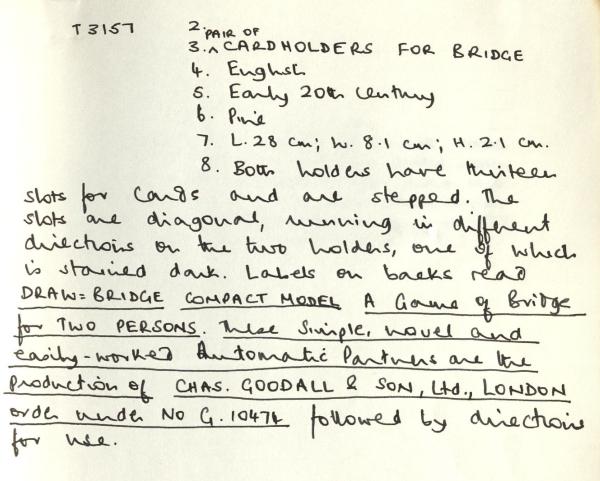 T 3157
2. PAIR OF
3. ^ CARDHOLDERS FOR BRIDGE
4. English
5. Early 20th century
6. Pine
7. L. 28 cm; W. 8.1 cm; H. 2.1 cm.
8. Both holders have thirteen
slots for cards and are stepped. The
slots are diagonal, running in different
directions on the two holders, one of which
is stained dark. Labels on backs read
DRAW=BRIDGE COMPACT MODEL A Game of Bridge
for TWO PERSONS. These simple, novel and
easily-worked Automatic Partners are the
production of CHAS. GOODALL & SON, Ltd., LONDON
order under NO G. 10474 followed by directions
for use.